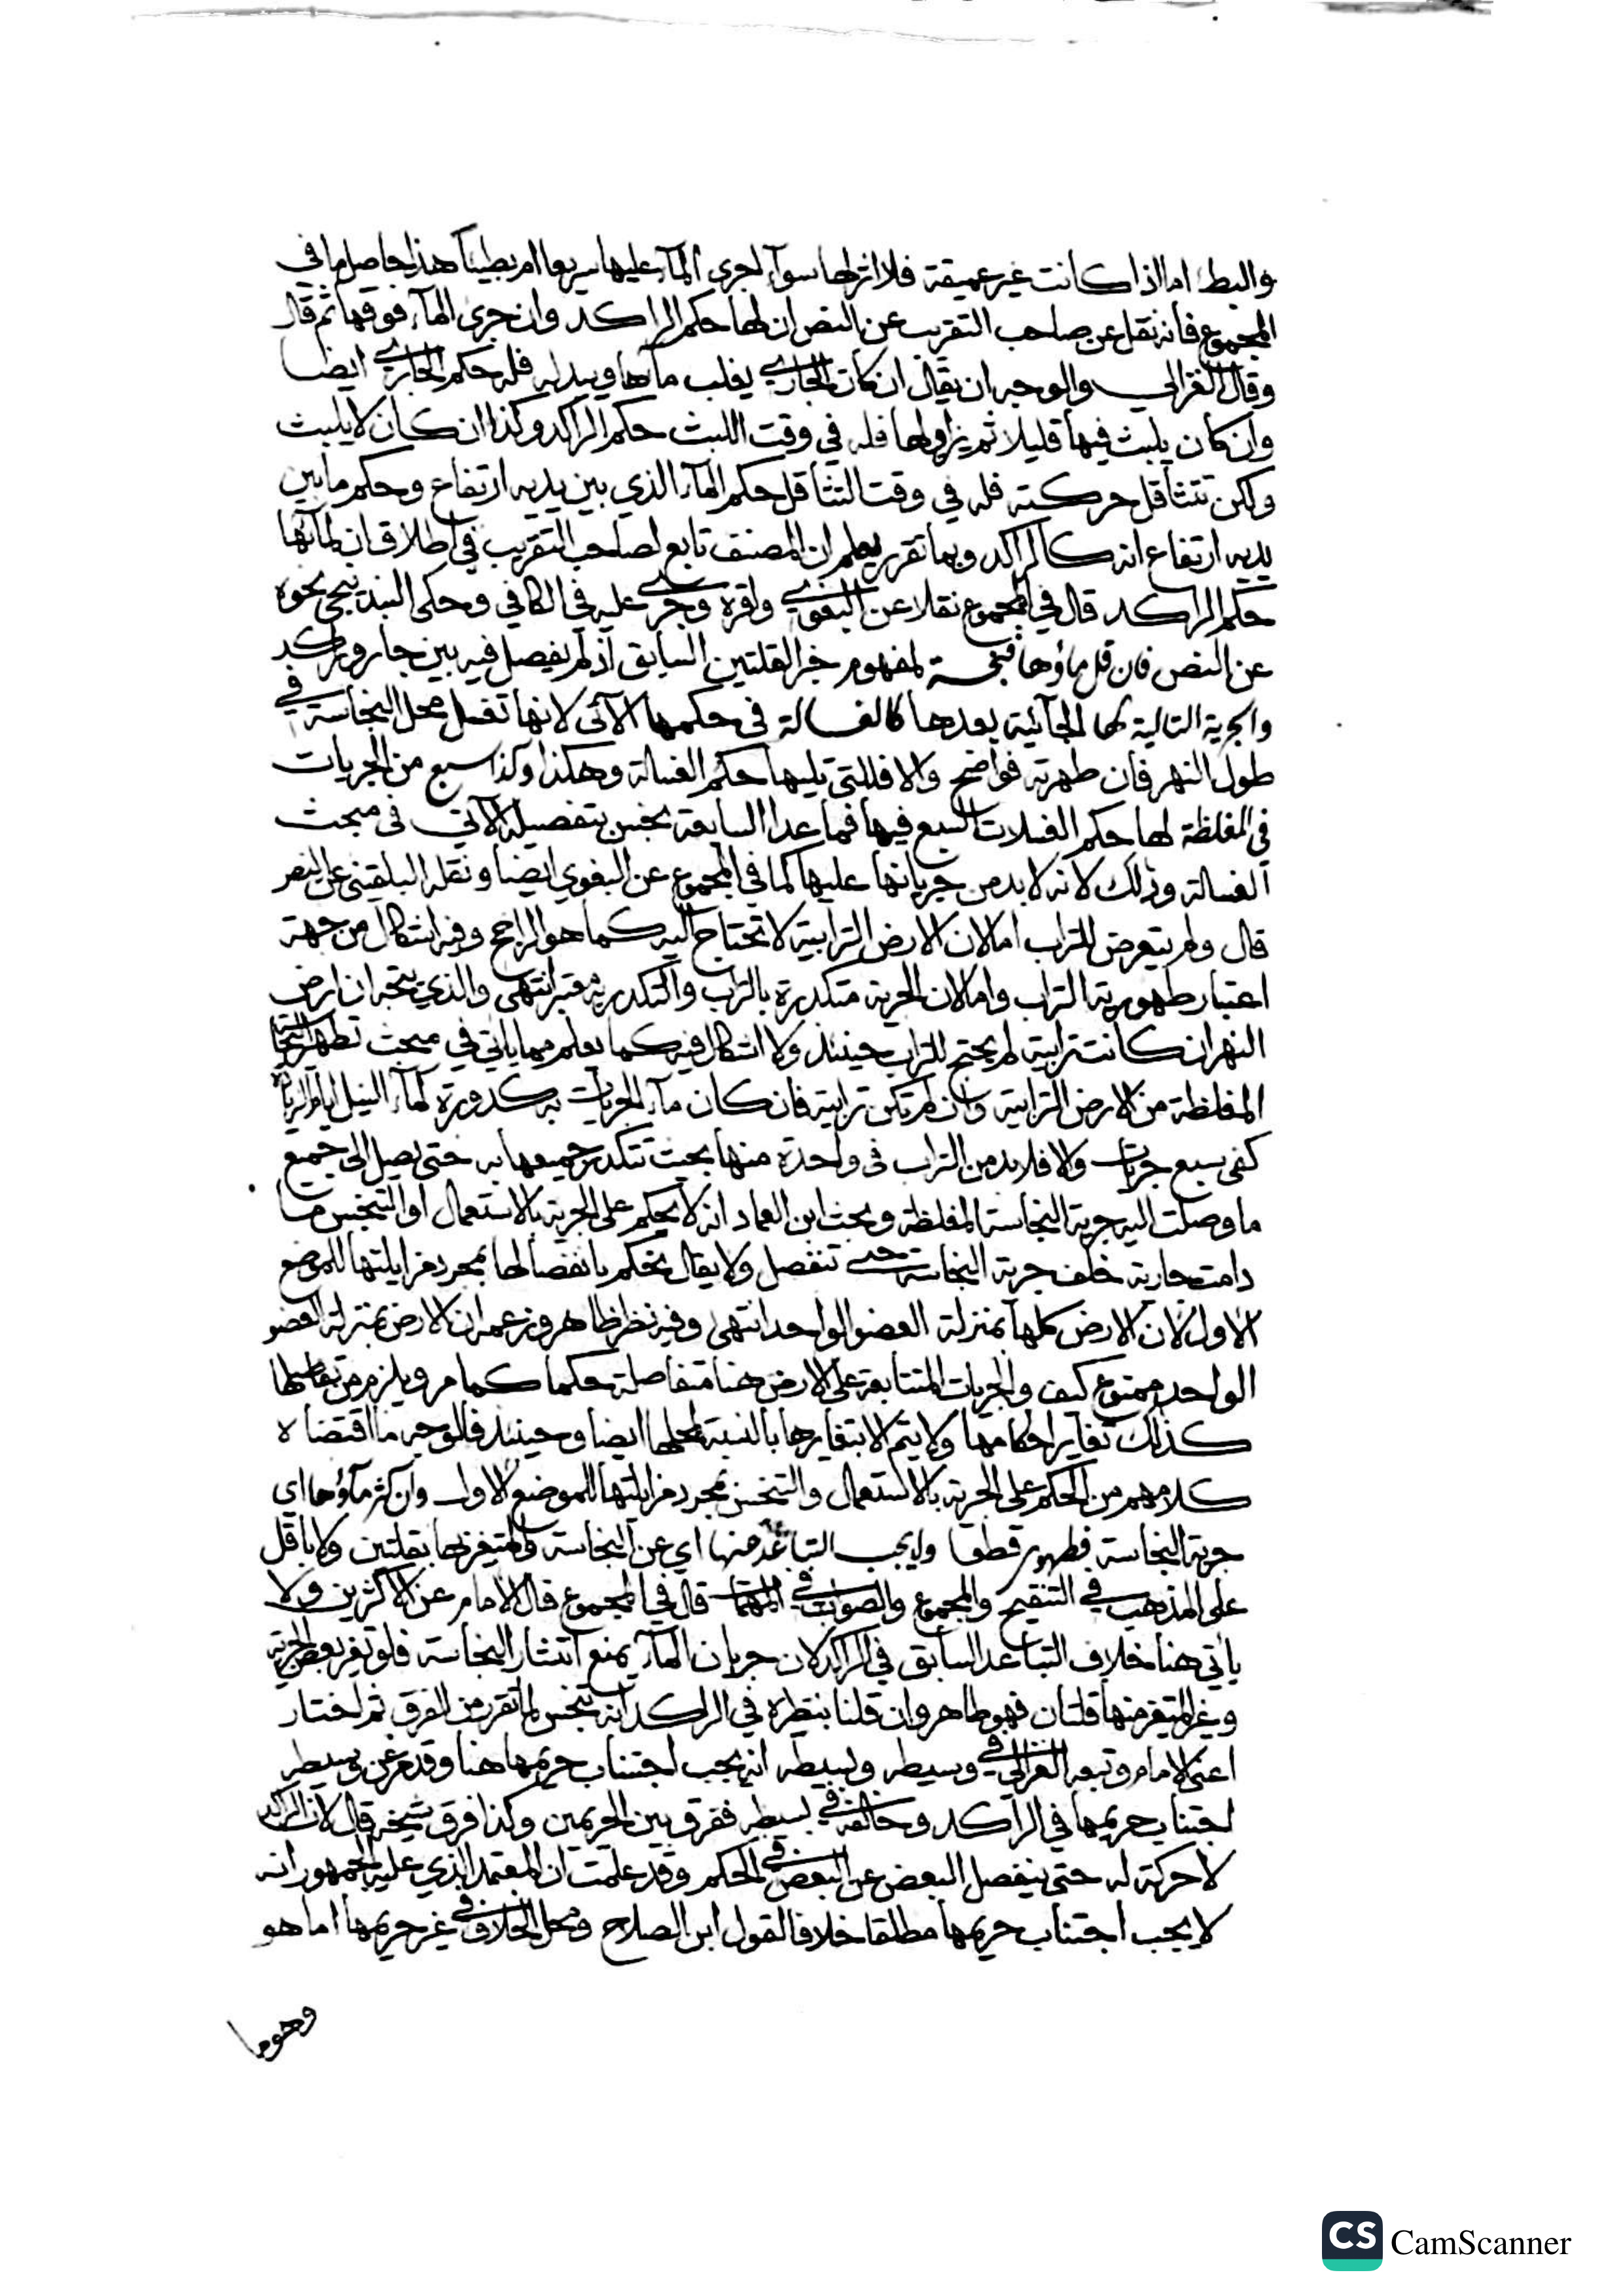 والبطء اما اذا كانت غير عميقة فلا اثر لها سوآء اجرى المآء عليها سريعا ام بطيئا هذا حاصل ما في
المجموع فانه نقل عن صاحب التقريب عن النص ان لها حكم الراكد وان جرى المآء فوقها ثم قال
وقال الغزالي والوجه ان يقال ان كان الجاري يغلب مآءها ويبدله فله حكم الجاري ايضا
وان كان يلبث فيها قليلا ثم يزاولها فله في وقت اللبث حكم الراكد وكذا ان كان لا يلبث
ولكن تتثاقل حركته فله في وقت التثاقل حكم المآء الذي بين يديه ارتفاع وحكم ما بين
يديه ارتفاع انه كالراكد وبما تقرر يعلم ان المصنف تابع لصاحب التقريب في اطلاق ان لمآئها
حكم الراكد قال في المجموع نقلا عن البغوي واقره وجرى عليه في الكافي وحكى البندنيجي نحوه
عن النص فان قل ماؤها فنجسة لمفهوم خبر القلتين السابق اذ لم يفصل فيه بين جار وراكد
والجرية التالية لها الجآئية بعدها كالغسالة في حكمها الآتى لانها تغسل محل النجاسة في
طول النهر فان طهرته فواضح والا فللتى تليها حكم الغسالة وهكذا وكذا سبع من الجريات
في المغلظة لها حكم الغسلات السبع فيها فما عدا السابعة نجس بتفصيله الآتي في مبحث
الغسالة وذلك لانه لا بد من جريانها عليها كما في المجموع عن البغوي ايضا ونقله البلقيني عن النص
قال ولم يتعرض للتراب اما لان الارض الترابية لا تحتاج اليه كما هو الراجح وفيه اشكال من جهة
اعتبار طهورية التراب واما لان الجرية متكدرة بالتراب والتكدر به معتبر انتهى والذي يتجه ان ارض
النهر ان كانت ترابية لم يحتج للتراب حينئذ ولا اشكال فيه كما يعلم مما ياتي في مبحث تطهير النجاسة
المغلظة من الارض الترابية وان لم تكن ترابية فان كان مآء الجريات به كدورة كمآء النيل ايام الزيادة
كفى سبع جريات والا فلا بد من التراب في واحدة منها بحيث تتكدر جميعها به حتى يصل الى جميع
ما وصلت اليه جرية النجاسة المغلظة وبحث ابن العماد انه لا يحكم على الجرية بالاستعمال او التنجس ما
دامت جارية خلف جرية النجاسة حتى تنفصل ولا يقال يحكم بانفصالها بمجرد مزايلتها للموضع
الاول لان الارض كلها بمنزلة العضو الواحد انتهى وفيه نظر ظاهر وزعمه ان الارض بمنزلة العضو
الواحد ممنوع كيف والجريات المتتابعة على الارض هنا متفاصلة حكما كما مر ويلزم من تفاصلها
كذلك تغاير احكامها ولا يتم الا بتغايرها بالنسبة لمحلها ايضا وحينئذ فالوجه ما اقتضاه
كلامهم من الحكم على الجرية بالاستعمال والتنجس بمجرد مزايلتها للموضع الاول وان كثر مآؤها اي
جرية النجاسة فطهور قطعا ولا يجب التباعد منها اي عن النجاسة ولم تتغير بها بقلتين ولا باقل
على المذهب في التنقيح والمجموع والصواب في المهمات قال في المجموع قال الامام عن الاكثرين ولا
ياتي هنا خلاف التباعد السابق في الراكد لان جريان المآء يمنع انتشار النجاسة فلو تغير بعض الجرية
وغير المتغير منها قلتان فهو طاهر وان قلنا بنظيره في الراكد انه نجس لما تقرر من الفرق ثم اختار
اعنى الامام وتبعه الغزالي في وسيطه وبسيطه انه يجب اجتناب حريمها هنا وقد مر عن وسيطه
اجتناب حريمها في الراكد وخالفه في بسيطه ففرق بين الحريمين وكذا فرق شيخه قال لان الراكد
لا حركة له حتى ينفصل البعض عن البعض في الحكم وقد علمت ان المعتمد الذي عليه الجمهور انه
لا يجب اجتناب حريمها مطلقا خلافا لقول ابن الصلاح ومحل الخلاف في غير حريمها اما هو
وهو ما
CS CamScanner